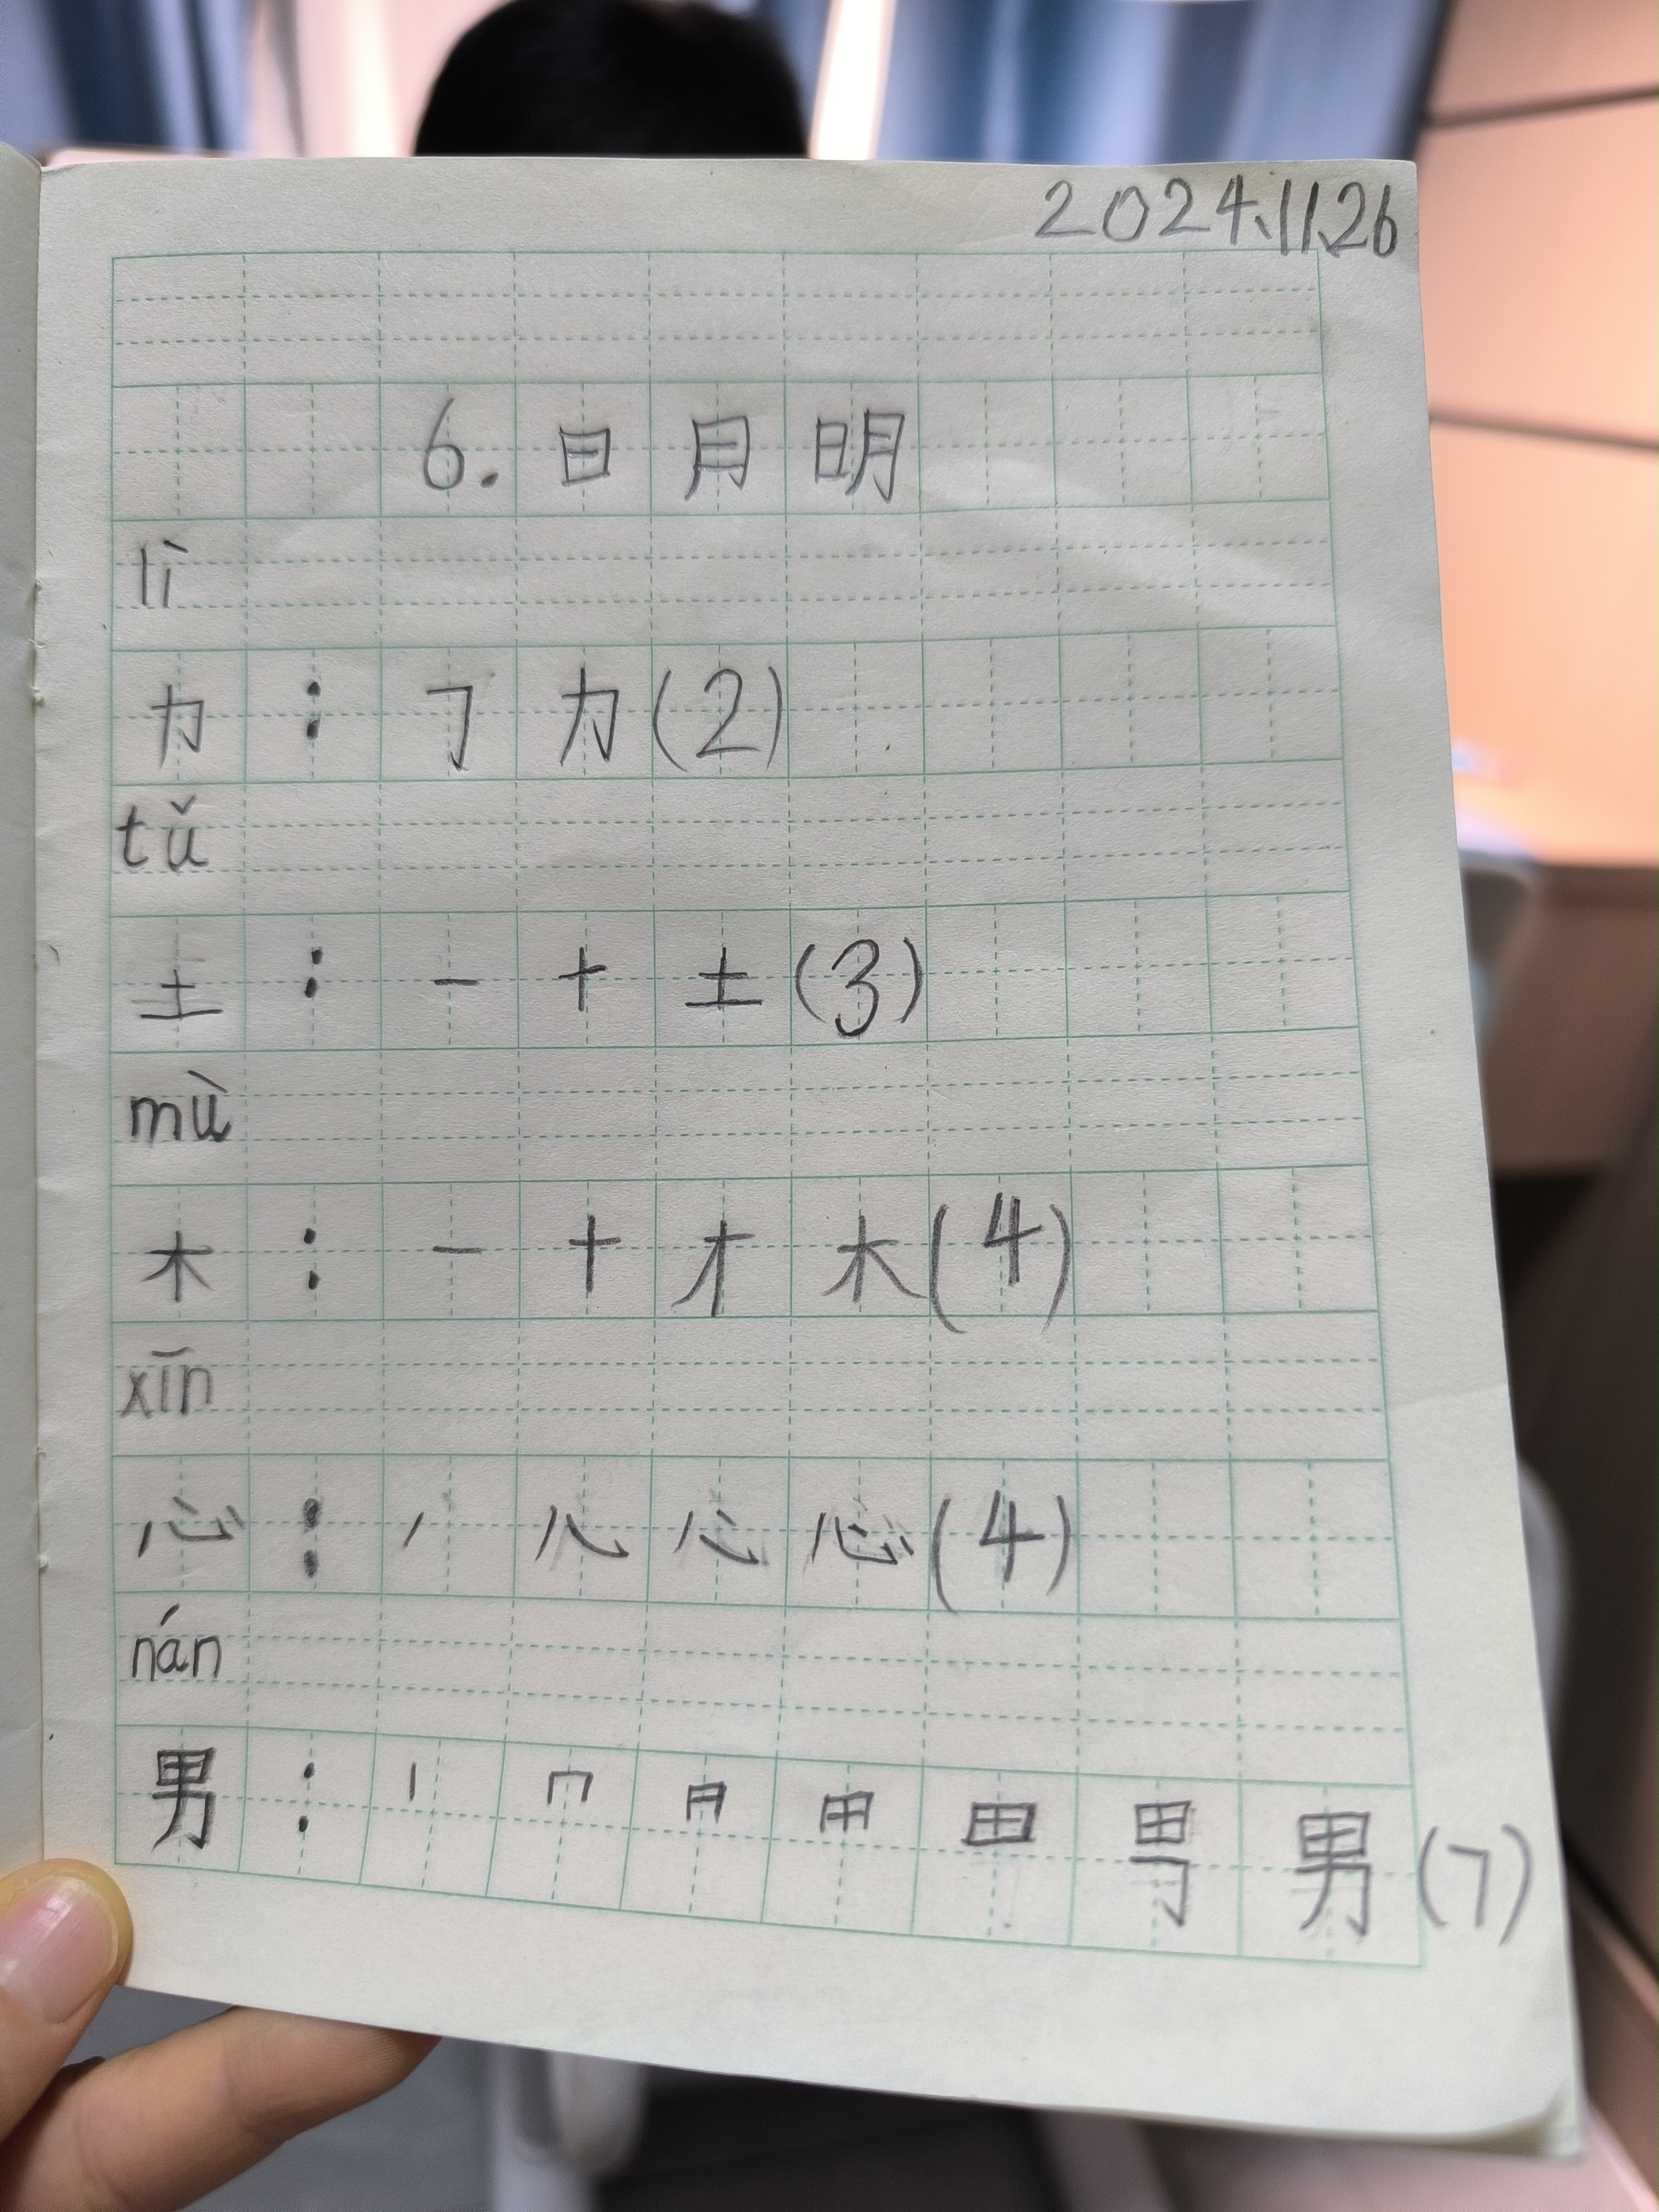 2024.11.26
6. 日月明
lì
力：㇆力(2)
tǔ
土：一十土(3)
mù
木：一十才木(4)
xīn
心：心(4)
nán
男：丨冂日田田男男(7)